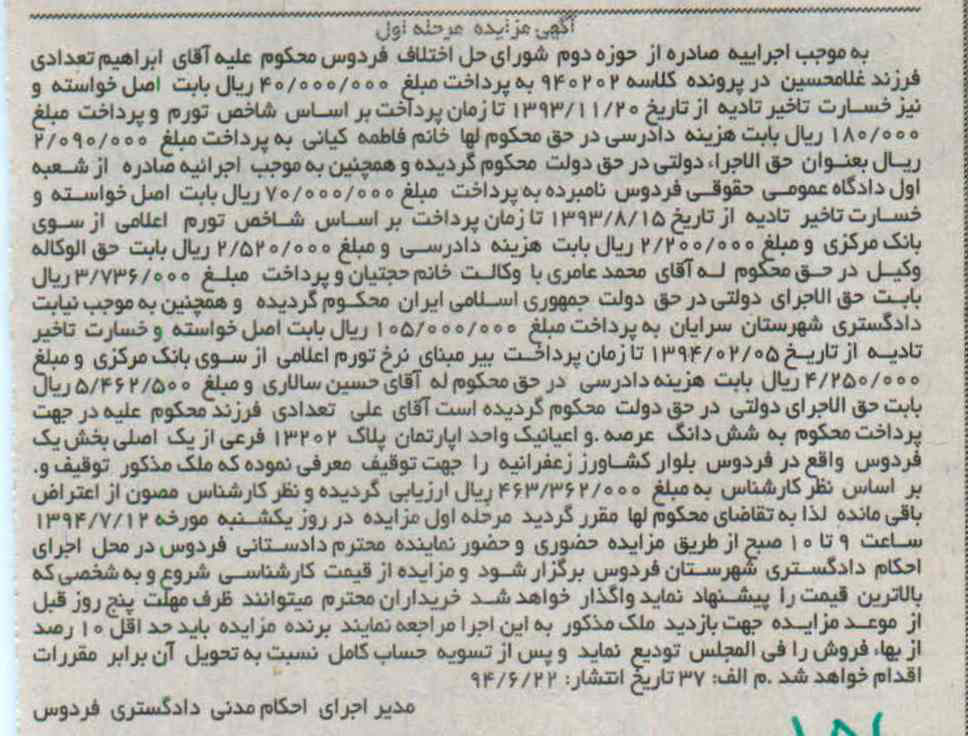 آگهی مزایده مرحله اول
به موجب اجراییه صادره از حوزه دوم شورای حل اختلاف فردوس محکوم علیه آقای ابراهیم تعدادی
فرزند غلامحسین در پرونده کلاسه ۹۴۰۲۰۲ به پرداخت مبلغ ۴۰/۰۰۰/۰۰۰ ریال بابت اصل خواسته و
نیز خسارت تاخیر تادیه از تاریخ ۱۳۹۳/۱۱/۲۰ تا زمان پرداخت بر اساس شاخص تورم و پرداخت مبلغ
۱۸۰/۰۰۰ ریال بابت هزینه دادرسی در حق محکوم لها خانم فاطمه کیانی به پرداخت مبلغ ۲/۰۹۰/۰۰۰
ریال بعنوان حق الاجراء دولتی در حق دولت محکوم گردیده و همچنین به موجب اجرائیه صادره از شعبه
اول دادگاه عمومی حقوقی فردوس نامبرده به پرداخت مبلغ ۷۰/۰۰۰/۰۰۰ ریال بابت اصل خواسته و
خسارت تاخیر تادیه از تاریخ ۱۳۹۳/۸/۱۵ تا زمان پرداخت بر اساس شاخص تورم اعلامی از سوی
بانک مرکزی و مبلغ ۲/۲۰۰/۰۰۰ ریال بابت هزینه دادرسی و مبلغ ۲/۵۲۰/۰۰۰ ریال بابت حق الوکاله
وکیل در حق محکوم له آقای محمد عامری با وکالت خانم حجتیان و پرداخت مبلغ ۳/۷۳۶/۰۰۰ ریال
بابت حق الاجرای دولتی در حق دولت جمهوری اسلامی ایران محکوم گردیده و همچنین به موجب نیابت
دادگستری شهرستان سرایان به پرداخت مبلغ ۱۰۵/۰۰۰/۰۰۰ ریال بابت اصل خواسته و خسارت تاخیر
تادیه از تاریخ ۱۳۹۴/۰۲/۰۵ تا زمان پرداخت بیر مبنای نرخ تورم اعلامی از سوی بانک مرکزی و مبلغ
۴/۲۵۰/۰۰۰ ریال بابت هزینه دادرسی در حق محکوم له آقای حسین سالاری و مبلغ ۵/۴۶۲/۵۰۰ ریال
بابت حق الاجرای دولتی در حق دولت محکوم گردیده است آقای علی تعدادی فرزند محکوم علیه در جهت
پرداخت محکوم به شش دانگ عرصه .و اعیانیک واحد اپارتمان پلاک ۱۳۲۰۲ فرعی از یک اصلی بخش یک
فردوس واقع در فردوس بلوار کشاورز زعفرانیه را جهت توقیف معرفی نموده که ملک مذکور توقیف و.
بر اساس نظر کارشناس به مبلغ ۴۶۳/۳۶۲/۰۰۰ ریال ارزیابی گردیده و نظر کارشناس مصون از اعتراض
باقی مانده لذا به تقاضای محکوم لها مقرر گردید مرحله اول مزایده در روز یکشنبه مورخه ۱۳۹۴/۷/۱۲
ساعت ۹ تا ۱۰ صبح از طریق مزایده حضوری و حضور نماینده محترم دادستانی فردوس در محل اجرای
احکام دادگستری شهرستان فردوس برگزار شود و مزایده از قیمت کارشناسی شروع و به شخصی که
بالاترین قیمت را پیشنهاد نماید واگذار خواهد شد خریداران محترم میتوانند ظرف مهلت پنج روز قبل
از موعد مزایده جهت بازدید ملک مذکور به این اجرا مراجعه نمایند برنده مزایده باید حد اقل ۱۰ رصد
از بهاء فروش را فی المجلس تودیع نماید و پس از تسویه حساب کامل نسبت به تحویل آن برابر مقررات
اقدام خواهد شد .م الف: ۳۷ تاریخ انتشار: ۹۴/۶/۲۲
مدیر اجرای احکام مدنی دادگستری فردوس